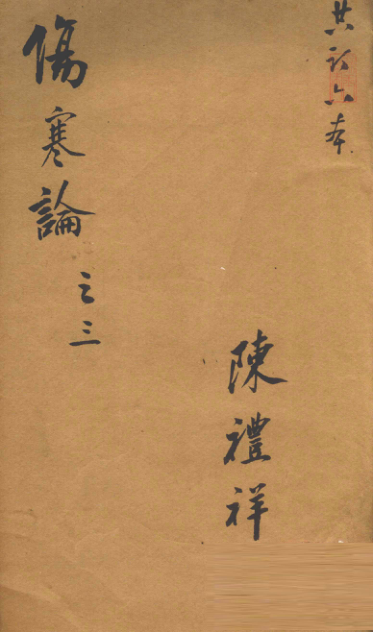 共訂六本
陳禮祥
傷寒論 之三